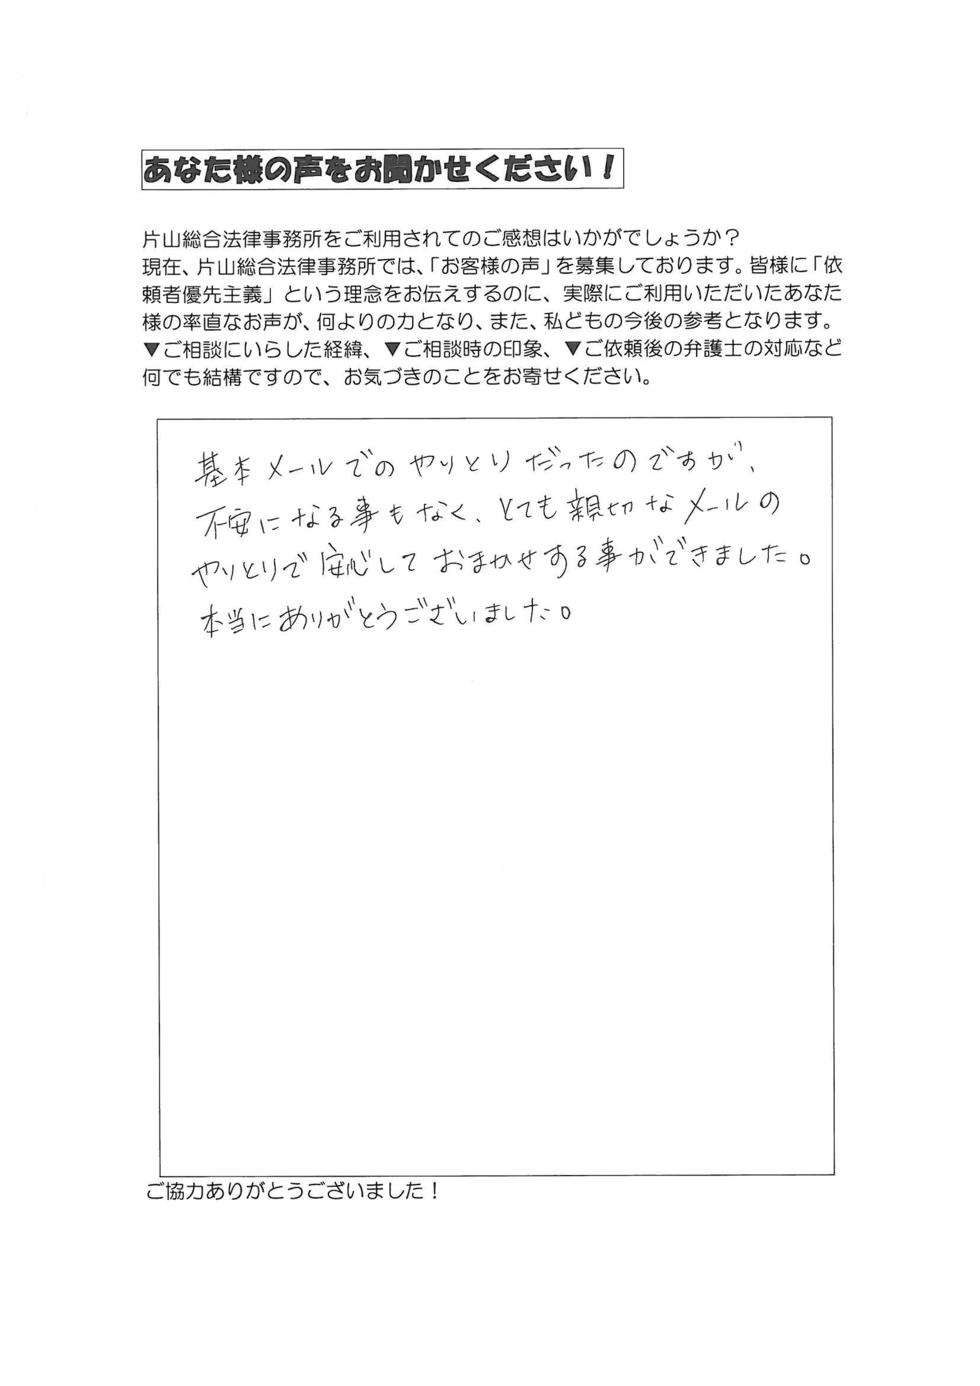 あなた様の声をお聞かせください！
片山総合法律事務所をご利用されてのご感想はいかがでしょうか？
現在、片山総合法律事務所では、「お客様の声」を募集しております。皆様に「依
頼者優先主義」という理念をお伝えするのに、実際にご利用いただいたあなた
様の率直なお声が、何よりの力となり、また、私どもの今後の参考となります。
▼ご相談にいらした経緯、▼ご相談時の印象、▼ご依頼後の弁護士の対応など
何でも結構ですので、お気づきのことをお寄せください。
基本メールでのやりとりだったのですが、
不安になる事もなく、とても親切なメールの
やりとりで安心しておまかせする事ができました。
本当にありがとうございました。
ご協力ありがとうございました！